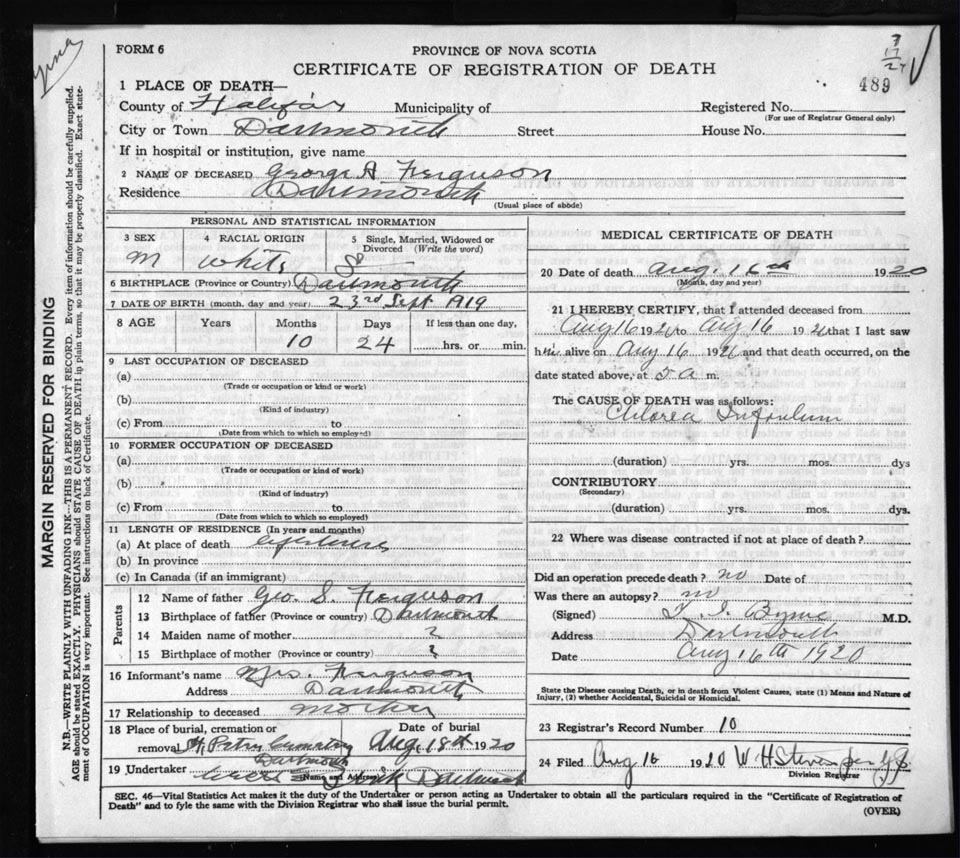 FORM 6
PROVINCE OF NOVA SCOTIA
CERTIFICATE OF REGISTRATION OF DEATH
489
1 PLACE OF DEATH—
County of Halifax Municipality of Registered No.
(For use of Registrar General only)
City or Town Dartmouth Street House No.
If in hospital or institution, give name
2 NAME OF DECEASED George A Ferguson
Residence Dartmouth
(Usual place of abode)
PERSONAL AND STATISTICAL INFORMATION
3 SEX 4 RACIAL ORIGIN 5 Single, Married, Widowed or Divorced (Write the word)
M White S
6 BIRTHPLACE (Province or Country) Dartmouth
7 DATE OF BIRTH (month, day and year) 23rd Sept 1919
8 AGE Years Months Days If less than one day,
10 24 hrs. or min.
9 LAST OCCUPATION OF DECEASED
(a)
(Trade or occupation or kind or work)
(b)
(Kind of industry)
(c) From to
(Date from which to which so employed)
10 FORMER OCCUPATION OF DECEASED
(a)
(Trade or occupation or kind of work)
(b)
(Kind of industry)
(c) From to
(Date from which to which so employed)
11 LENGTH OF RESIDENCE (In years and months)
(a) At place of death
(b) In province
(c) In Canada (if an immigrant)
Parents
12 Name of father Geo. S. Ferguson
13 Birthplace of father (Province or country) Dartmouth
14 Maiden name of mother ?
15 Birthplace of mother (Province or country) ?
16 Informant's name Mrs. Ferguson
Address Dartmouth
17 Relationship to deceased Mother
18 Place of burial, cremation or Date of burial
removal St Peters Cemetery Aug 18th 1920
Dartmouth
19 Undertaker Dartmouth
(Name and Address)
MEDICAL CERTIFICATE OF DEATH
20 Date of death Aug. 16th 1920
(Month, day and year)
21 I HEREBY CERTIFY, that I attended deceased from
Aug 16 192 to Aug 16 192 that I last saw
him alive on Aug 16 192 and that death occurred, on the
date stated above, at 5 a m.
The CAUSE OF DEATH was as follows:
Cholera Infantum
(duration) yrs. mos. dys
CONTRIBUTORY
(Secondary)
(duration) yrs. mos. dys.
22 Where was disease contracted if not at place of death?
Did an operation precede death? no Date of
Was there an autopsy? no
(Signed) Byrne M.D.
Address Dartmouth
Date Aug 16th 1920
State the Disease causing Death, or in death from Violent Causes, state (1) Means and Nature of
Injury, (2) whether Accidental, Suicidal or Homicidal.
23 Registrar's Record Number 10
24 Filed Aug 16 1920 W H
Division Registrar
SEC. 46—Vital Statistics Act makes it the duty of the Undertaker or person acting as Undertaker to obtain all the particulars required in the "Certificate of Registration of
Death" and to fyle the same with the Division Registrar who shall issue the burial permit.
(OVER)
MARGIN RESERVED FOR BINDING
N.B.—WRITE PLAINLY WITH UNFADING INK—THIS IS A PERMANENT RECORD. Every item of information should be carefully supplied.
AGE should be stated EXACTLY. PHYSICIANS should STATE CAUSE OF DEATH in plain terms, so that it may be properly classified. Exact statement of OCCUPATION is very important. See instructions on back of Certificate.